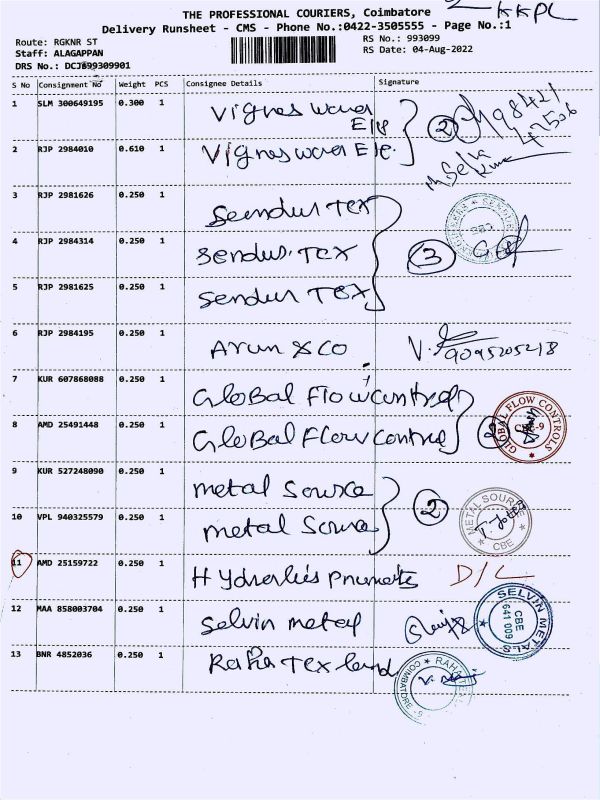 KKPL
THE PROFESSIONAL COURIERS, Coimbatore
Delivery Runsheet - CMS - Phone No.:0422-3505555 - Page No.:1
Route: RGKNR ST
RS No.: 993099
Staff: ALAGAPPAN
RS Date: 04-Aug-2022
DRS No.: DCJ699309901
S No Consignment No Weight PCS Consignee Details Signature
1 SLM 300649195 0.300 1 Vignes waver Ele 2 98421
47506
2 RJP 2984010 0.610 1 Vignes waver Ele. M. Selva Kumar
3 RJP 2981626 0.250 1 Sendur Tex
4 RJP 2984314 0.250 1 Sendur Tex 3
5 RJP 2981625 0.250 1 Sendur Tex
6 RJP 2984195 0.250 1 Arun & Co V. 9095205218
7 KUR 607868088 0.250 1 Global Flow control
8 AMD 25491448 0.250 1 Global Flow control GLOBAL FLOW CONTROLS CBE-9
9 KUR 527248090 0.250 1 metal source
10 VPL 940325579 0.250 1 metal source 2 METAL SOURCE CBE
11 AMD 25159722 0.250 1 Hydraulics Pneumatic D/L
12 MAA 858003704 0.250 1 Selvin metal SELVIN METALS CBE 641 009
13 BNR 4852036 0.250 1 Raha Tex land RAHA TEX COIMBATORE